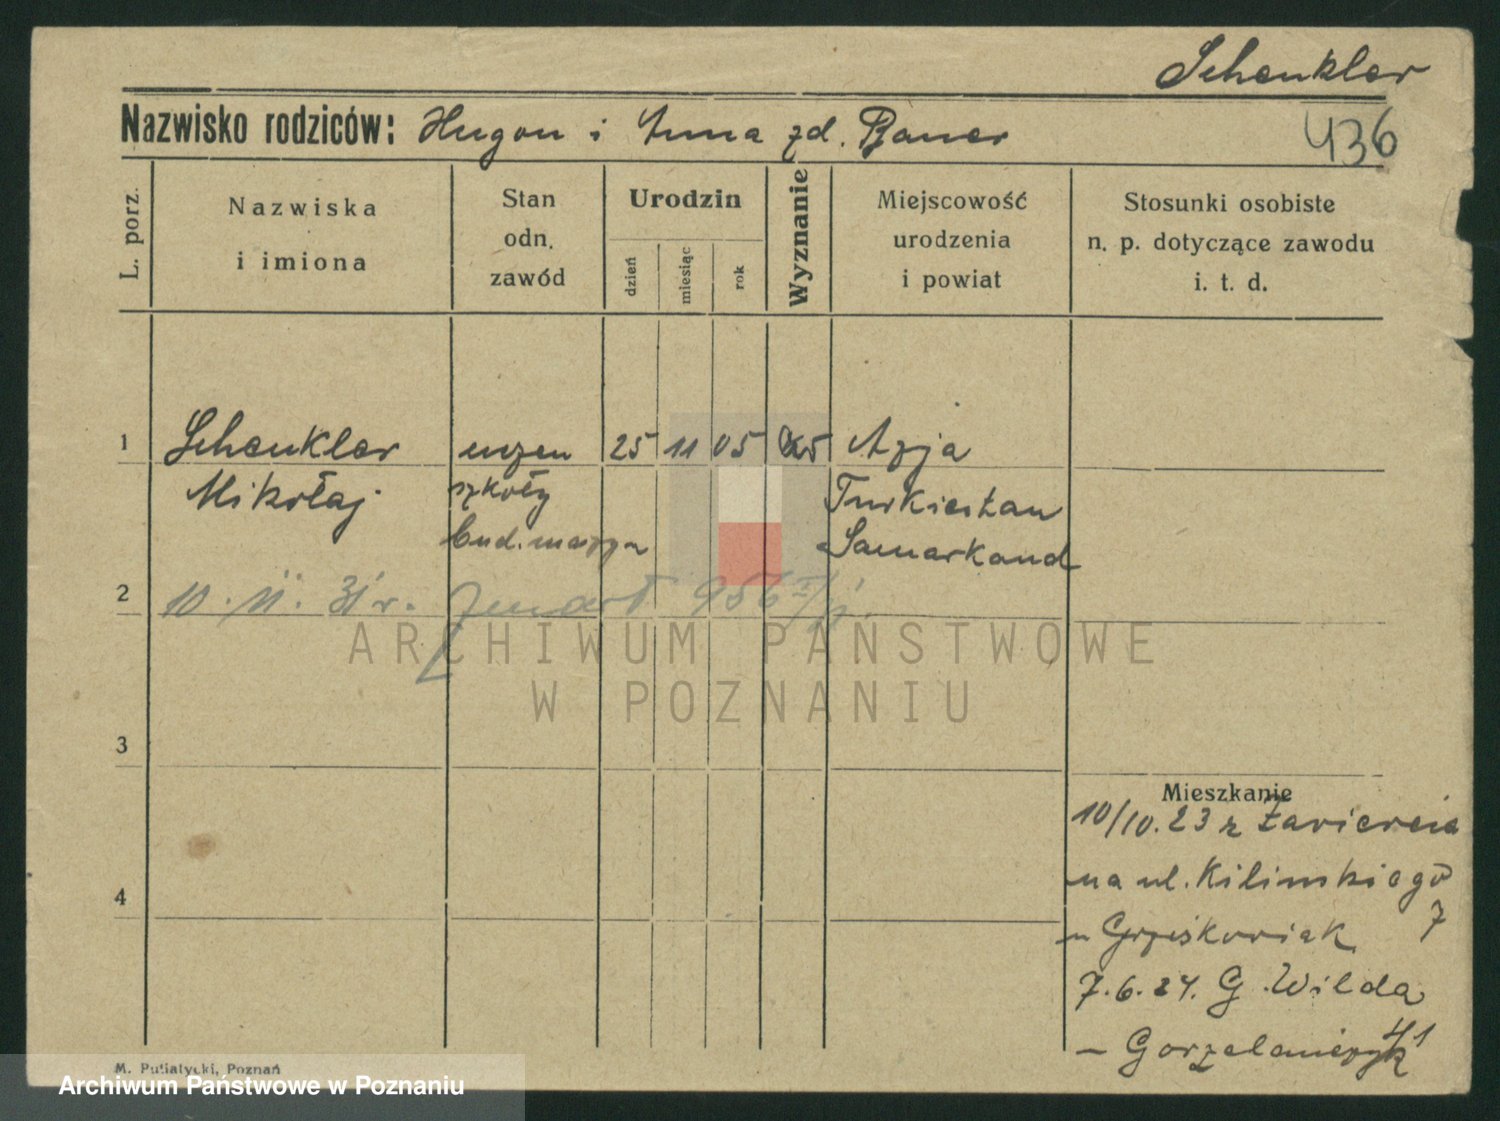 Schenkler
Nazwisko rodziców: Hugon i Anna zd. Bauer
436
L. porz.
Nazwiska
i imiona
Stan
odn.
zawód
Urodzin
dzień
miesiąc
rok
Wyznanie
Miejscowość
urodzenia
i powiat
Stosunki osobiste
n. p. dotyczące zawodu
i. t. d.
1 Schenkler uczen 25 11 05 Azja
Mikołaj szkoły Turkiestan
bud. maszyn Samarkand
2 10. 11. 31 r. 956
ARCHIWUM PAŃSTWOWE
W POZNANIU
3
Mieszkanie
10/10.23 z Zawiercia
na ul. Kilinskiego
7
4
u Grześkowiak
7.6.24. G. Wilda
41
– Gorzelańczyk
M. Putiatycki, Poznań
Archiwum Państwowe w Poznaniu